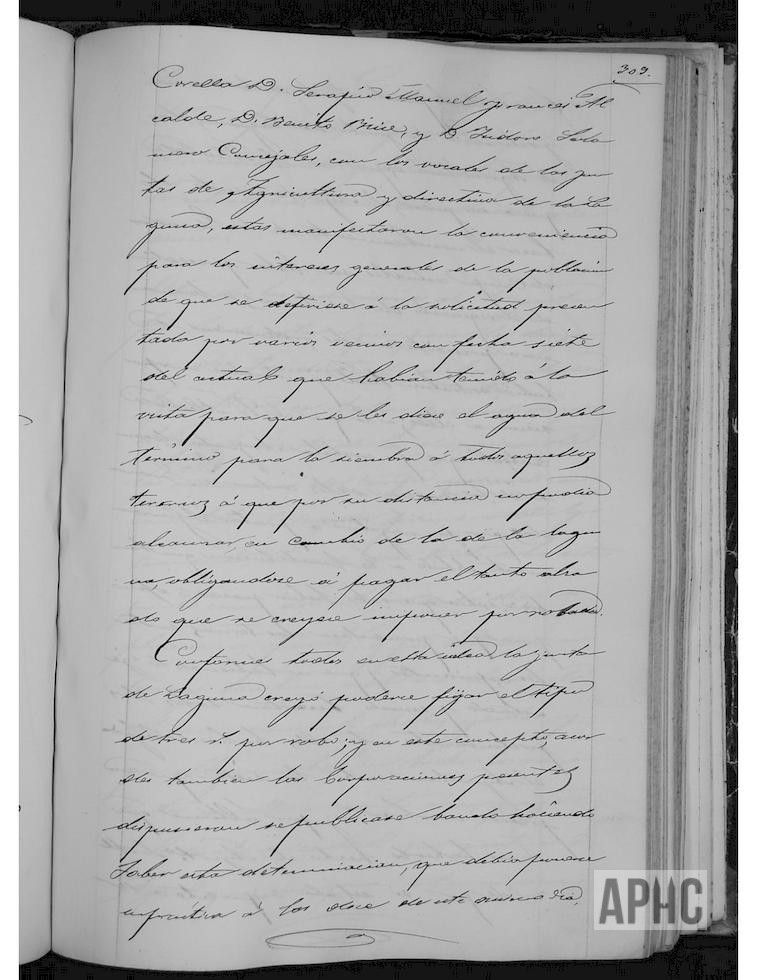 303.
Corella D. Serafin Manuel Frances Al
calde, D. Benito Virie, y D. Isidoro Sola
nero Concejales, con los vocales de las jun
tas de Agricultura y directiva de la La
guna, estas manifestaron la conveniencia
para los intereses generales de la poblacion
de que se defiriese á la solicitud presen
tada por varios vecinos con fecha siete
del actual que habian tenido á la
vista para que se les diese el agua del
término para la siembra á todos aquellos
terrenos á que por su distancia impedia
alcanzar, en cambio de la de la lagu
na, obligandose á pagar el tanto
do que se creyese imponer por robada.
Conformes todos en esta idea la junta
de Laguna creyó poderse fijar el tipo
de tres r. por robo; y en este concepto, acor
des tambien las Corporaciones presentes
dispusieron se publicase bando haciendo
saber esta determinacion, que debia ponerse
en práctica á las doce de este mismo dia.
APHC